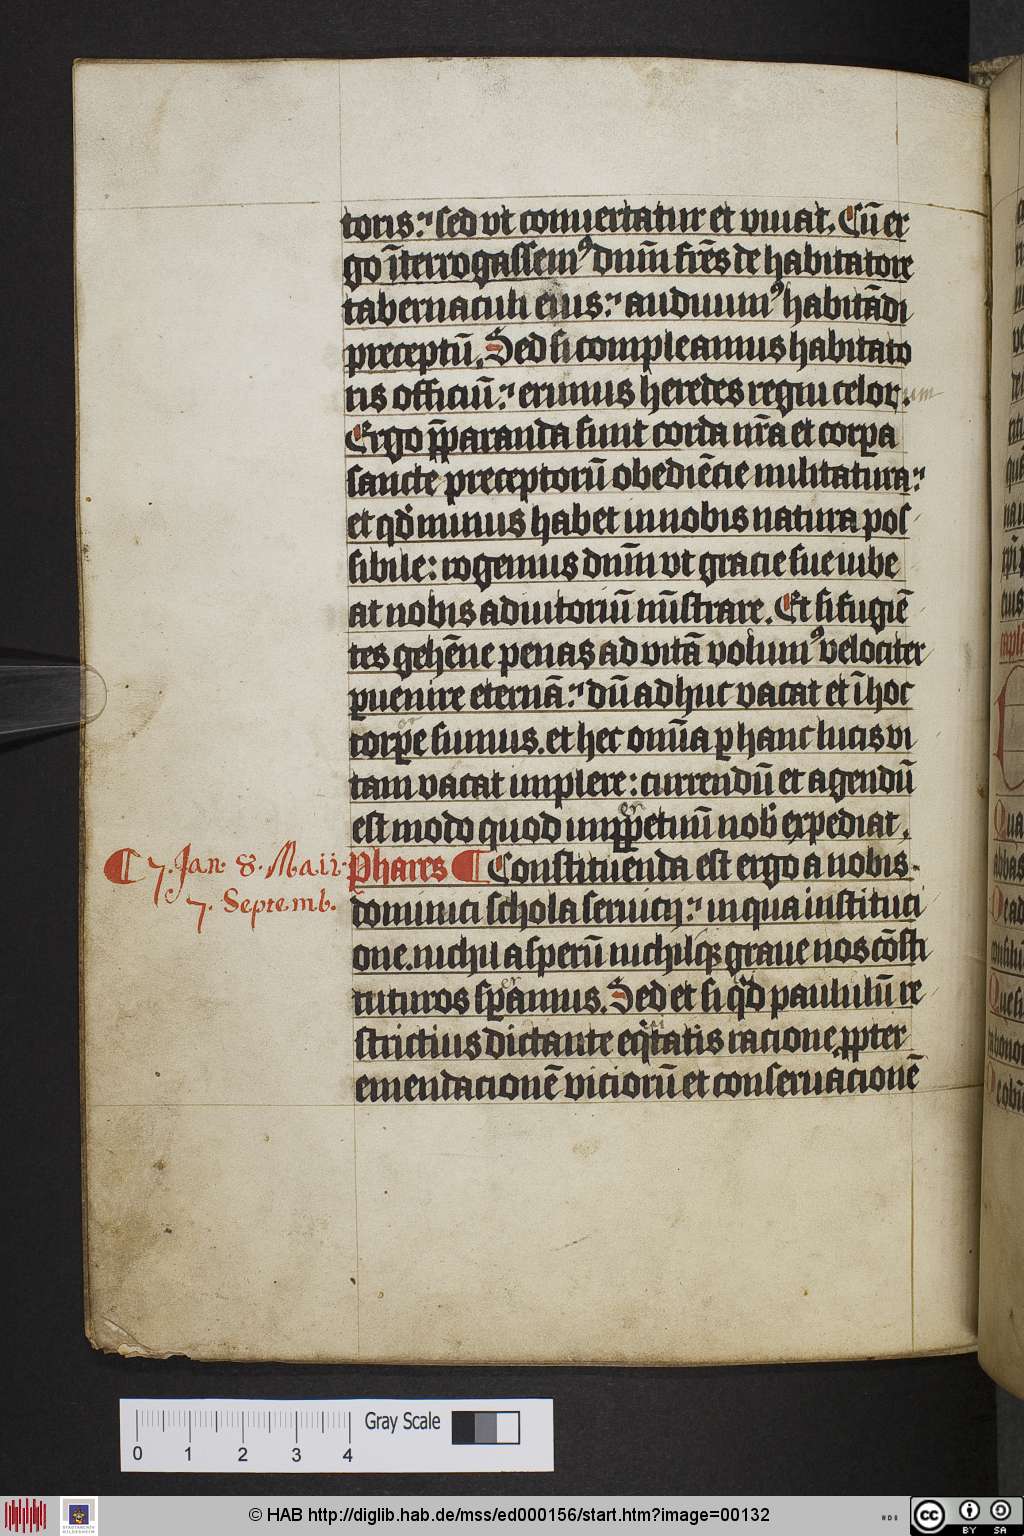 toris: sed vt conuertatur et viuat. Cū er
go īterrogassemꝰ dn̄m frēs de habitatore
tabernaculi eius: audiuimꝰ habitādi
preceptū. Sed si compleamus habitato
ris officiū: erimus heredes regni celoꝝ. um
Ergo p̄paranda sunt corda nr̄a et corꝑa
sancte preceptorū obediēcie militatura:
et qd̓ minus habet in nobis natura pos
sibile: rogemus dn̄m vt gracie sue iube
at nobis adiutoriū mīstrare. Et si fugiē
tes gehēne penas ad vitā volumꝰ velociter
ꝑuenire eternā: dū adhuc vacat et ī hoc
corꝑe sumus. et hec om̄ia ꝑ hanc lucis vi
tam vacat implere: currendū et agendū
est modo quod imꝑpetuū nob̓ expediat.
¶ 7. Jan. 8. Maii. Phares ¶ Constituenda est ergo a nobis
7. Septemb.
dominici schola seruicij: in qua instituci
one. nichil asperū nichilqꝫ graue nos cōsti
tuturos sꝑamus. Sed et si qͥd paululū re
strictius dictante eqͥtatis racione ꝓpter
emendacionē viciorū et conseruacionē
0 1 2 3 4 Gray Scale
© HAB http://diglib.hab.de/mss/ed000156/start.htm?image=00132
cc BY SA